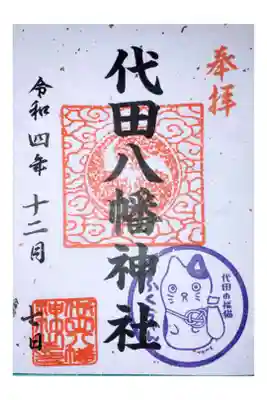 奉拝
代田八幡神社
令和四年 十二月 七日
代田の招福猫
ふく